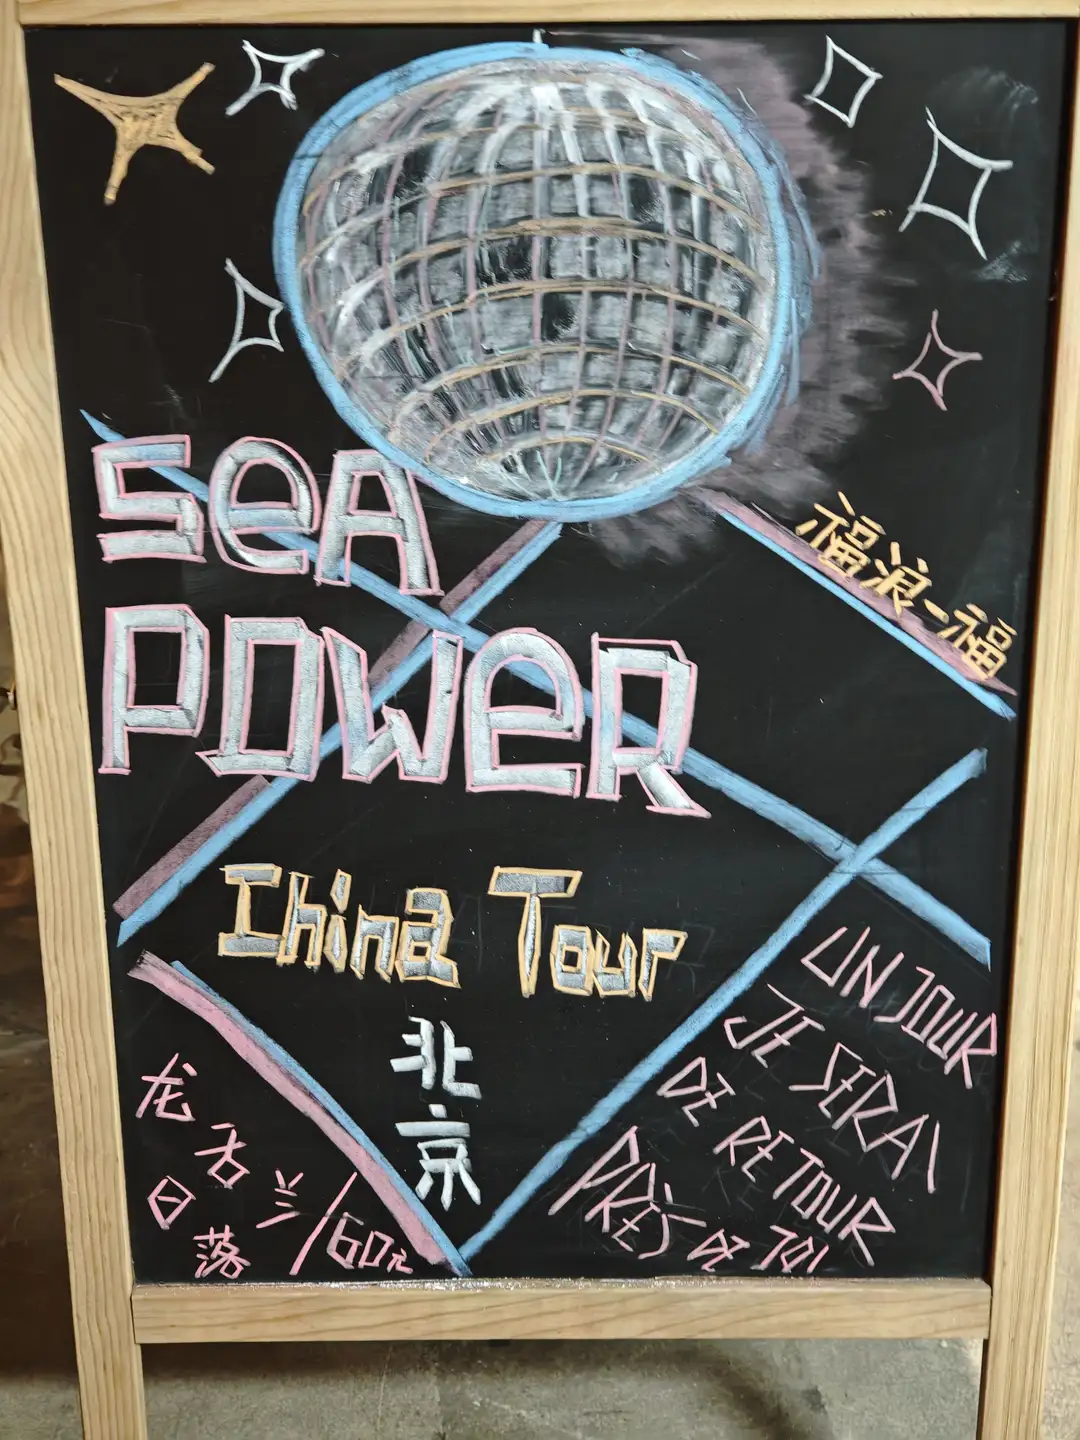 SeA
POWeR
福浪一福
China Tour
北
京
龙舌兰/60元
日落
UN JOUR
JE SERAI
DE RETOUR
PRÈS DE TOI